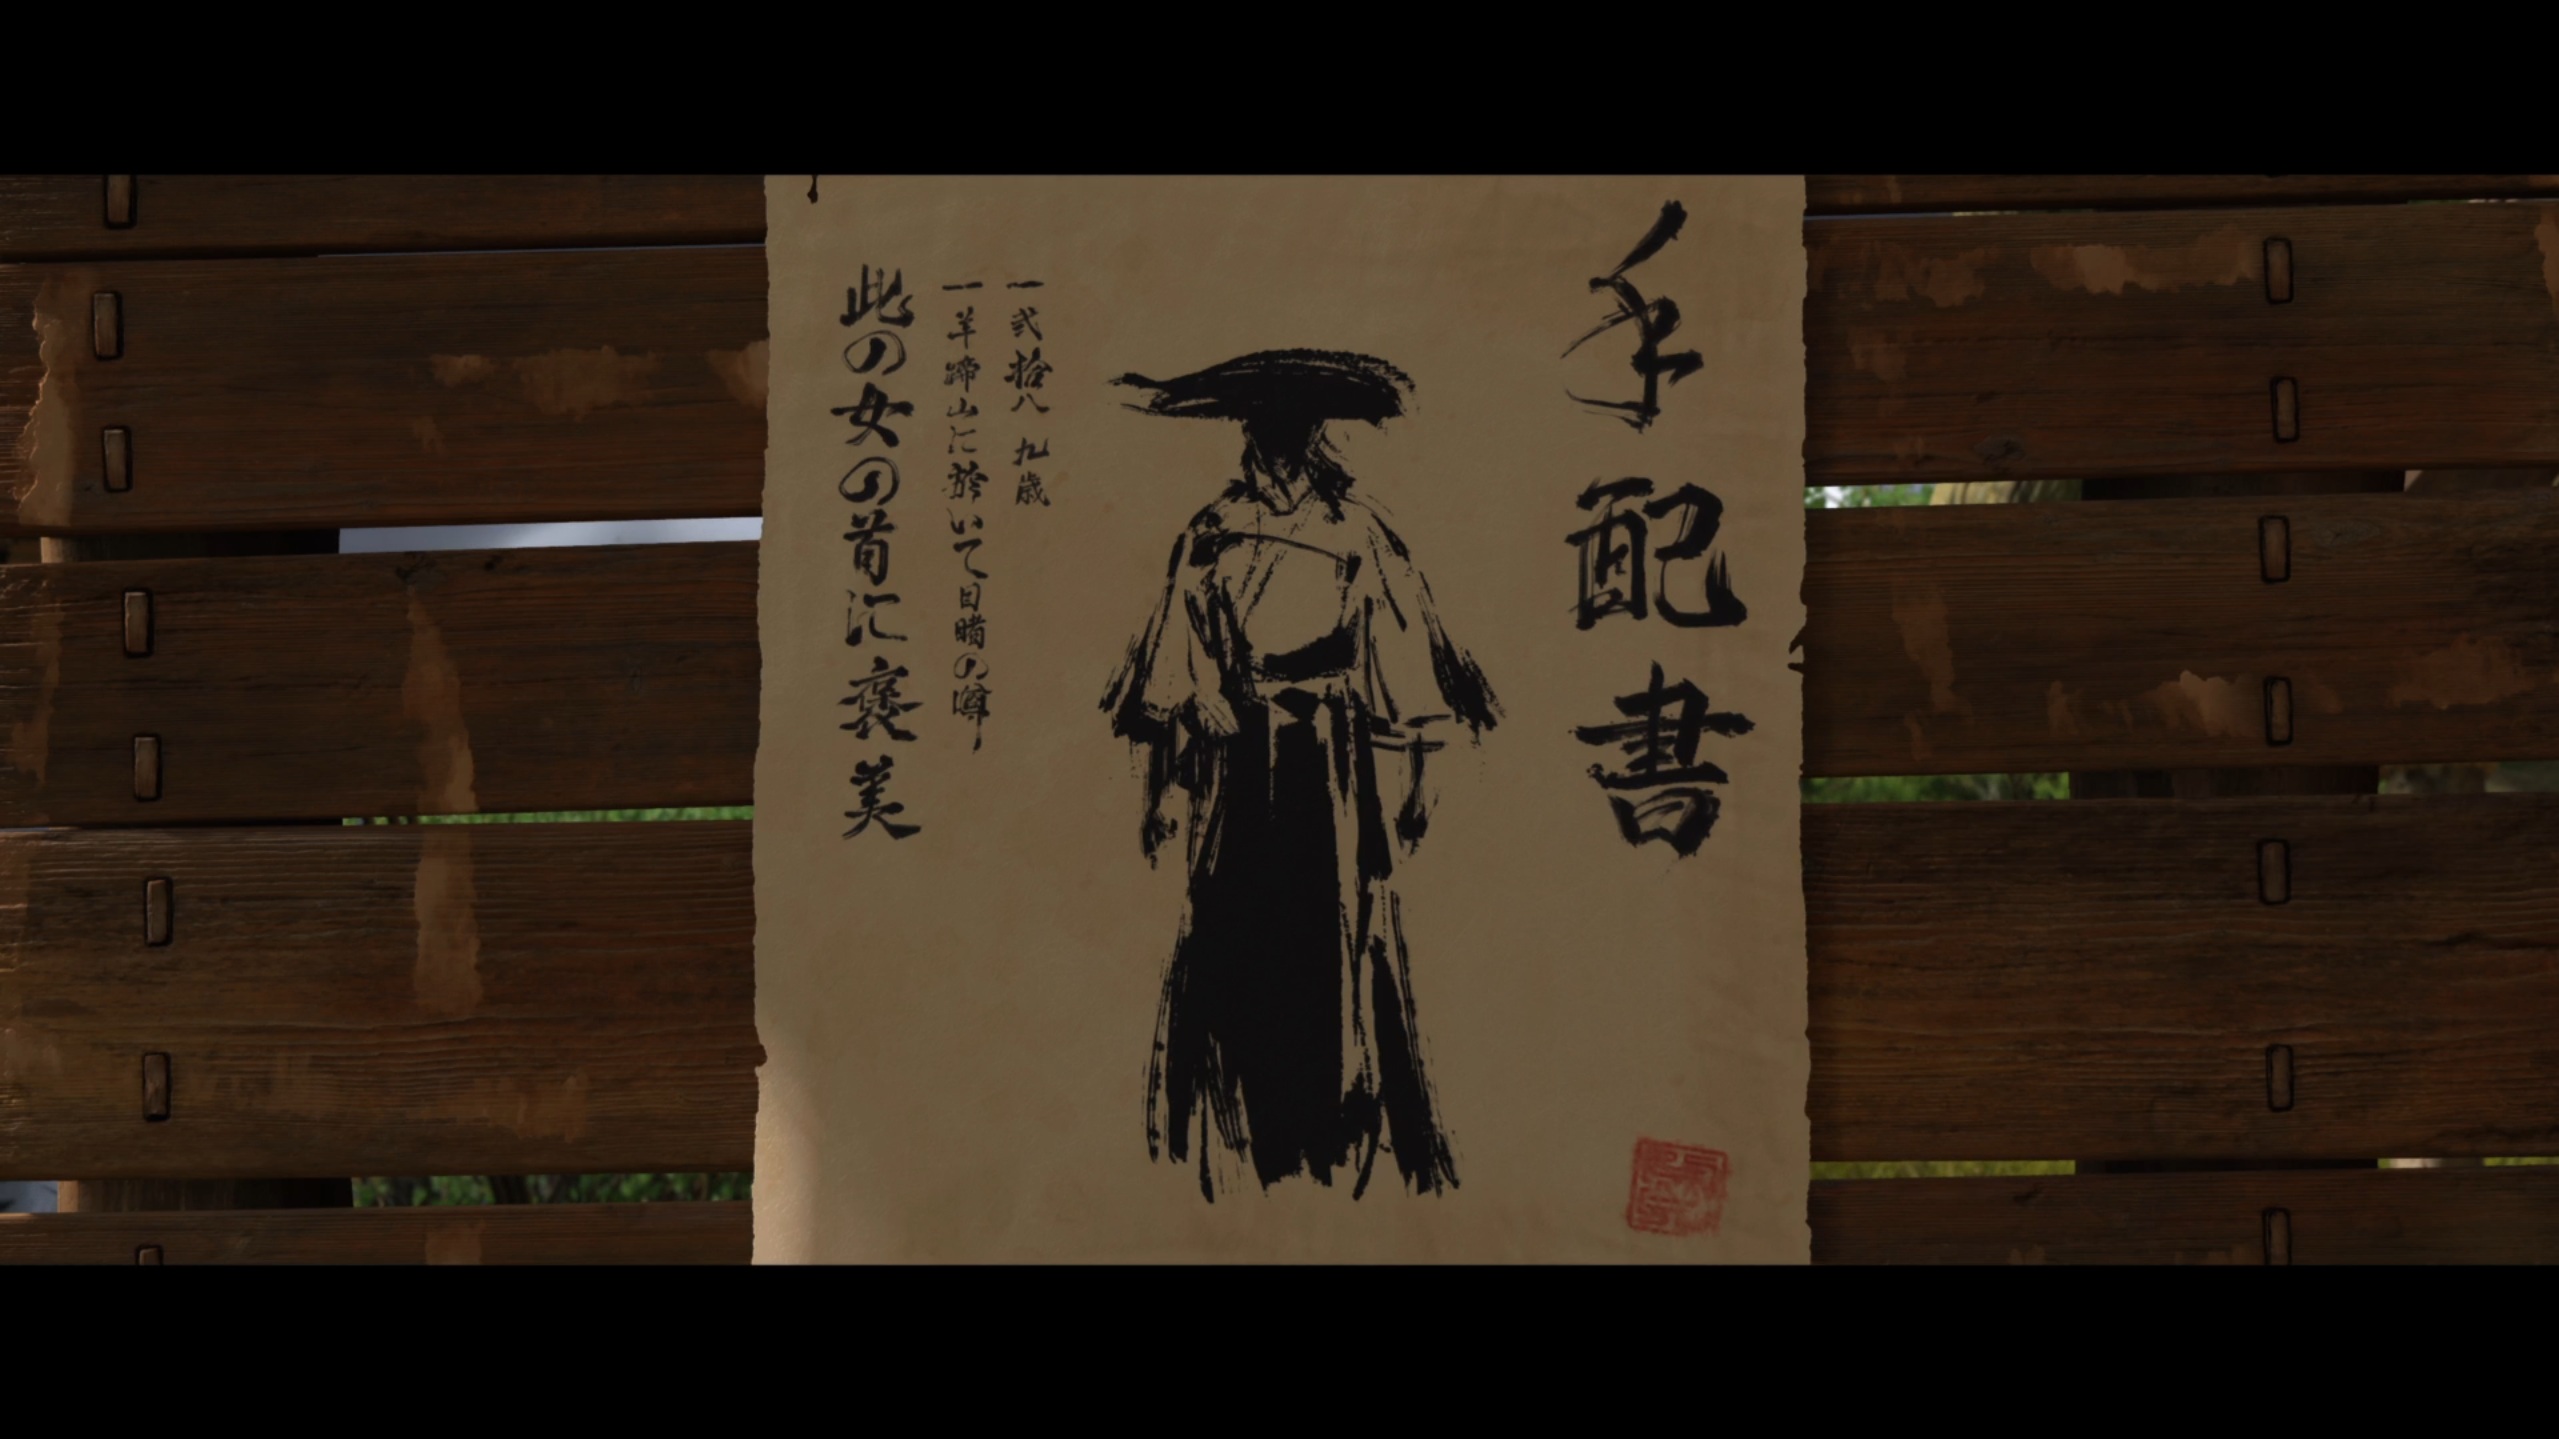 手配書
一弐拾八九歳
一羊蹄山に於いて目睹の噂
此の女の首に褒美